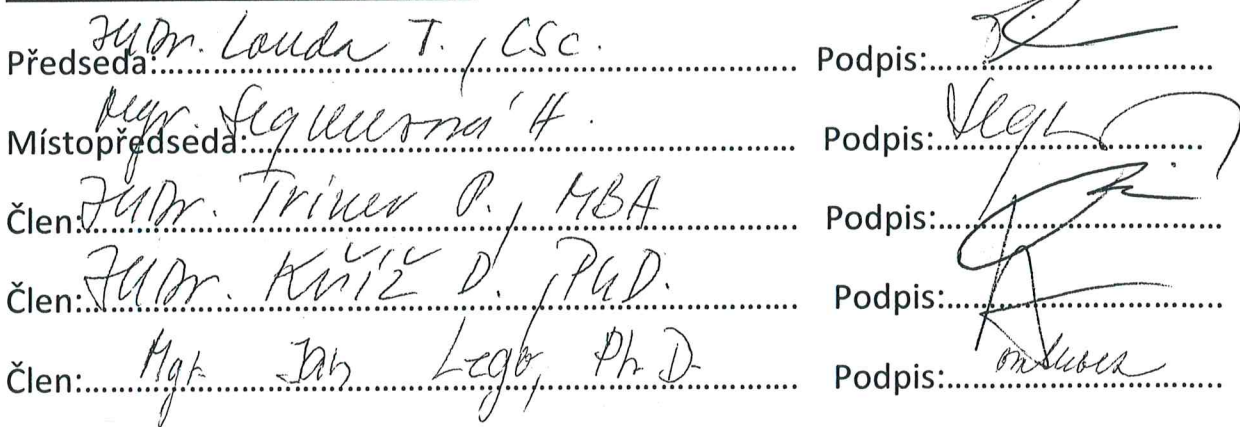 Předseda: JUDr. Louda T., CSc. Podpis:
Místopředseda: Mgr. H. Podpis:
Člen: JUDr. Triner P., MBA Podpis:
Člen: JUDr. Kříž D., PhD. Podpis:
Člen: Mgr. Jan Lego, Ph.D. Podpis: